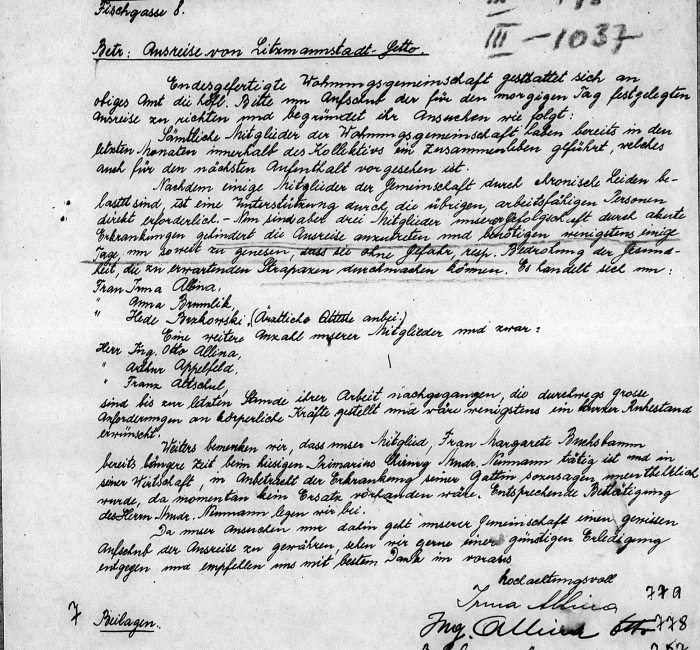 Fischgasse 8.
III - 1037
Betr: Ausreise von Litzmannstadt-Getto.
Endesgefertigte Wohnungsgemeinschaft gestattet sich an
obiges Amt die höfl. Bitte um Aufschub der für den morgigen Tag festgelegten
Ausreise zu richten und begründet ihr Ansuchen wie folgt:
Sämtliche Mitglieder der Wohnungsgemeinschaft haben bereits in den
letzten Monaten innerhalb des Kollektivs ein Zusammenleben geführt, welches
auch für den nächsten Aufenthalt vorgesehen ist.
Nachdem einige Mitglieder der Gemeinschaft durch chronische Leiden be-
lastet sind, ist eine Unterstützung durch die übrigen, arbeitsfähigen Personen
direkt erforderlich. - Nun sind aber drei Mitglieder unserer Gefolgschaft durch akute
Erkrankungen gehindert die Ausreise anzutreten und benötigen wenigstens einige
Tage, um soweit zu genesen, dass sie ohne Gefahr, resp. Bedrohung der Gesund-
heit, die zu erwartenden Strapazen durchmachen können. Es handelt sich um:
Frau Irma Allina,
" Anna Brumlik,
" Hede Berkowski (Ärztliche Atteste anbei.)
Eine weitere Anzahl unserer Mitglieder und zwar:
Herr Ing. Otto Allina,
" Arthur Appelfeld,
" Franz Altschul,
sind bis zur letzten Stunde ihrer Arbeit nachgegangen, die durchwegs grosse
Anforderungen an körperliche Kräfte gestellt und wäre wenigstens ein kurzer Ruhestand
erwünscht.
Weiters bemerken wir, dass unser Mitglied, Frau Margarete Buchsbaum
bereits längere Zeit beim hiesigen Primarius Chirurg Mudr. Neumann tätig ist und in
seiner Wirtschaft, in Anbetracht der Erkrankung seiner Gattin sozusagen unentbehrlich
wurde, da momentan kein Ersatz vorhanden wäre. Entsprechende Bestätigung
des Herrn Mudr. Neumann legen wir bei.
Da unser Ansuchen nur dahin geht unserer Gemeinschaft einen gewissen
Aufschub der Ausreise zu gewähren, sehen wir gerne einer günstigen Erledigung
entgegen und empfehlen uns mit bestem Dank im voraus
hochachtungsvoll
Irma Allina 779
7 Beilagen. Ing. Allina Otto 778